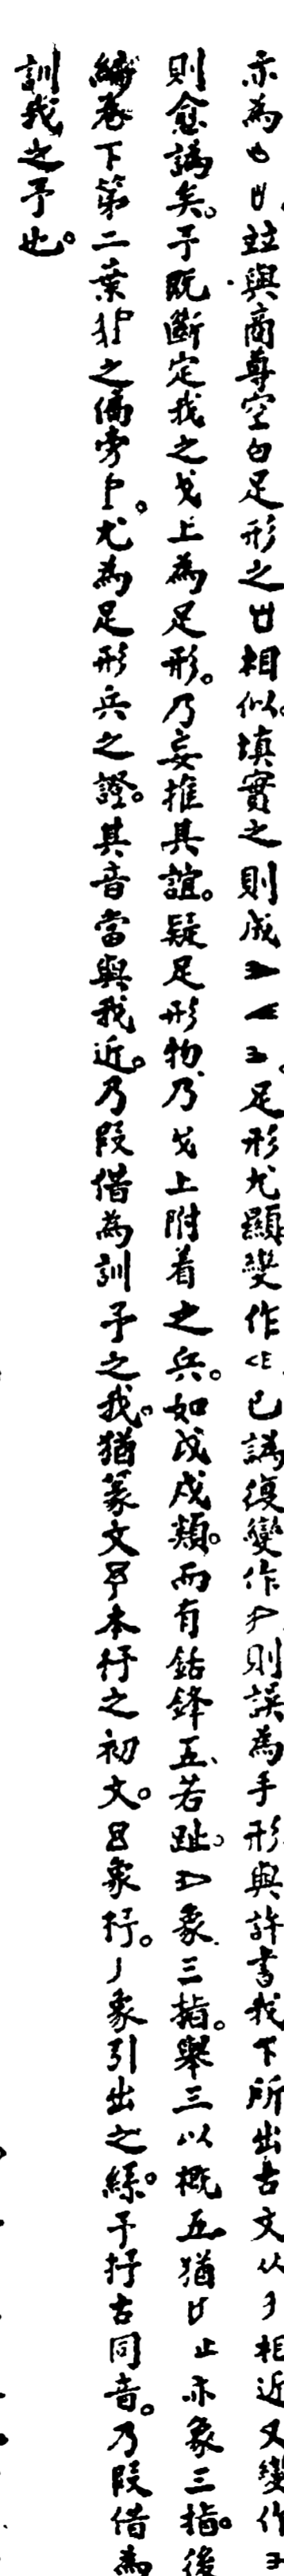 亦為也ㄩ竝與商尊空白足形之ㄩ相似。填實之則成。足形尤顯變作已譌復變作則誤為手形與許書我下所出古文从相近又變作
則愈譌矣。予既斷定我之戈上為足形。乃妄推其誼。疑足形物乃戈上附着之兵。如戊戌類。而有銛鋒五、若趾。象三指。舉三以概五猶止亦象三指。後
編卷下第二葉之偏旁。尤為足形兵之證。其音當與我近。乃叚借為訓予之我。猶篆文予本杼之初文。象杼。丿象引出之絲。予抒古同音。乃叚借為
訓我之予也。